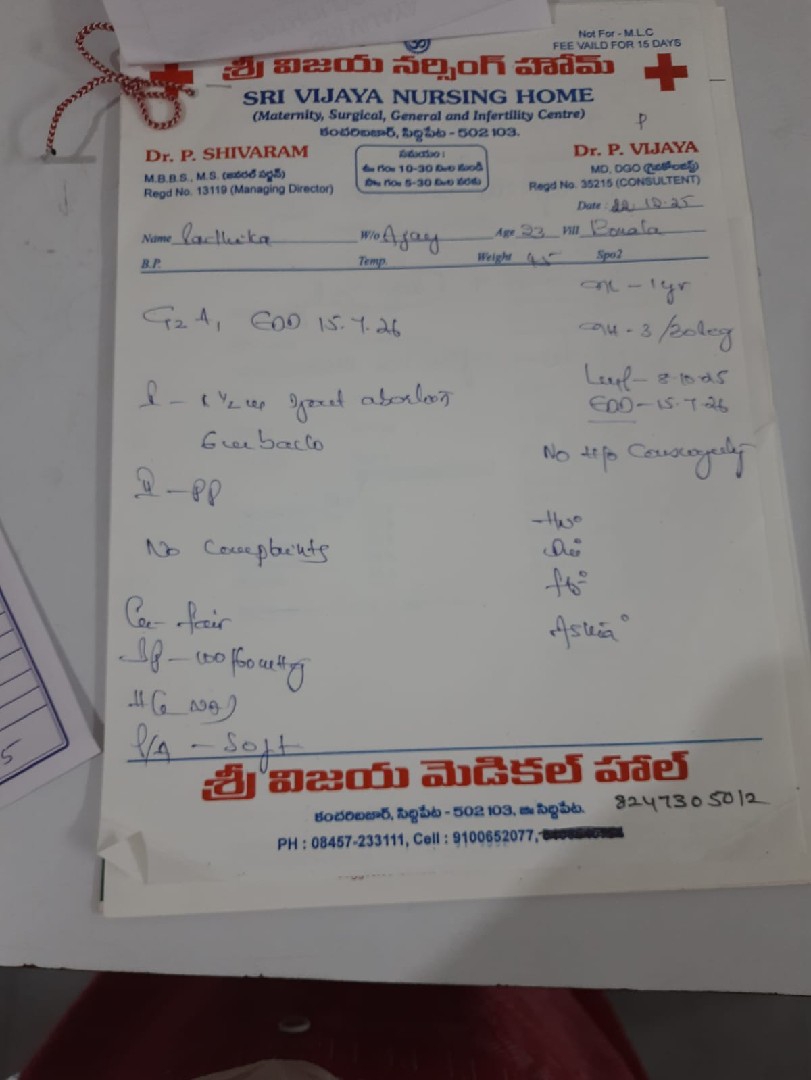 Not For - M.L.C
FEE VAILD FOR 15 DAYS
శ్రీ విజయ నర్సింగ్ హోమ్
SRI VIJAYA NURSING HOME
(Maternity, Surgical, General and Infertility Centre)
కంచరిబజార్, సిద్దిపేట - 502 103.
P
Dr. P. SHIVARAM
M.B.B.S., M.S. (జనరల్ సర్జన్)
Regd No. 13119 (Managing Director)
సమయం :
ఉ॥ గం॥ 10-30 ని॥ల నుండి
సా॥ గం॥ 5-30 ని॥ల వరకు
Dr. P. VIJAYA
MD, DGO (గైనకాలజిస్ట్)
Regd No. 35215 (CONSULTENT)
Date : 22.10.25
Name Radhika W/o Ajay Age 23 Vill
B.P. Temp. Weight 45 Spo2
- 1yr
G2 A1 EDD 15.7.26
- 3/30
- 8.10.25
I - abortion
EDD - 15.7.26
No H/o
II - PP
No Complaints
GC - fair
BP - 100/60 mmHg
P/A - Soft
Asthma°
శ్రీ విజయ మెడికల్ హాల్
కంచరిబజార్, సిద్దిపేట - 502 103, జి॥ సిద్దిపేట.
8247305012
PH : 08457-233111, Cell : 9100652077,